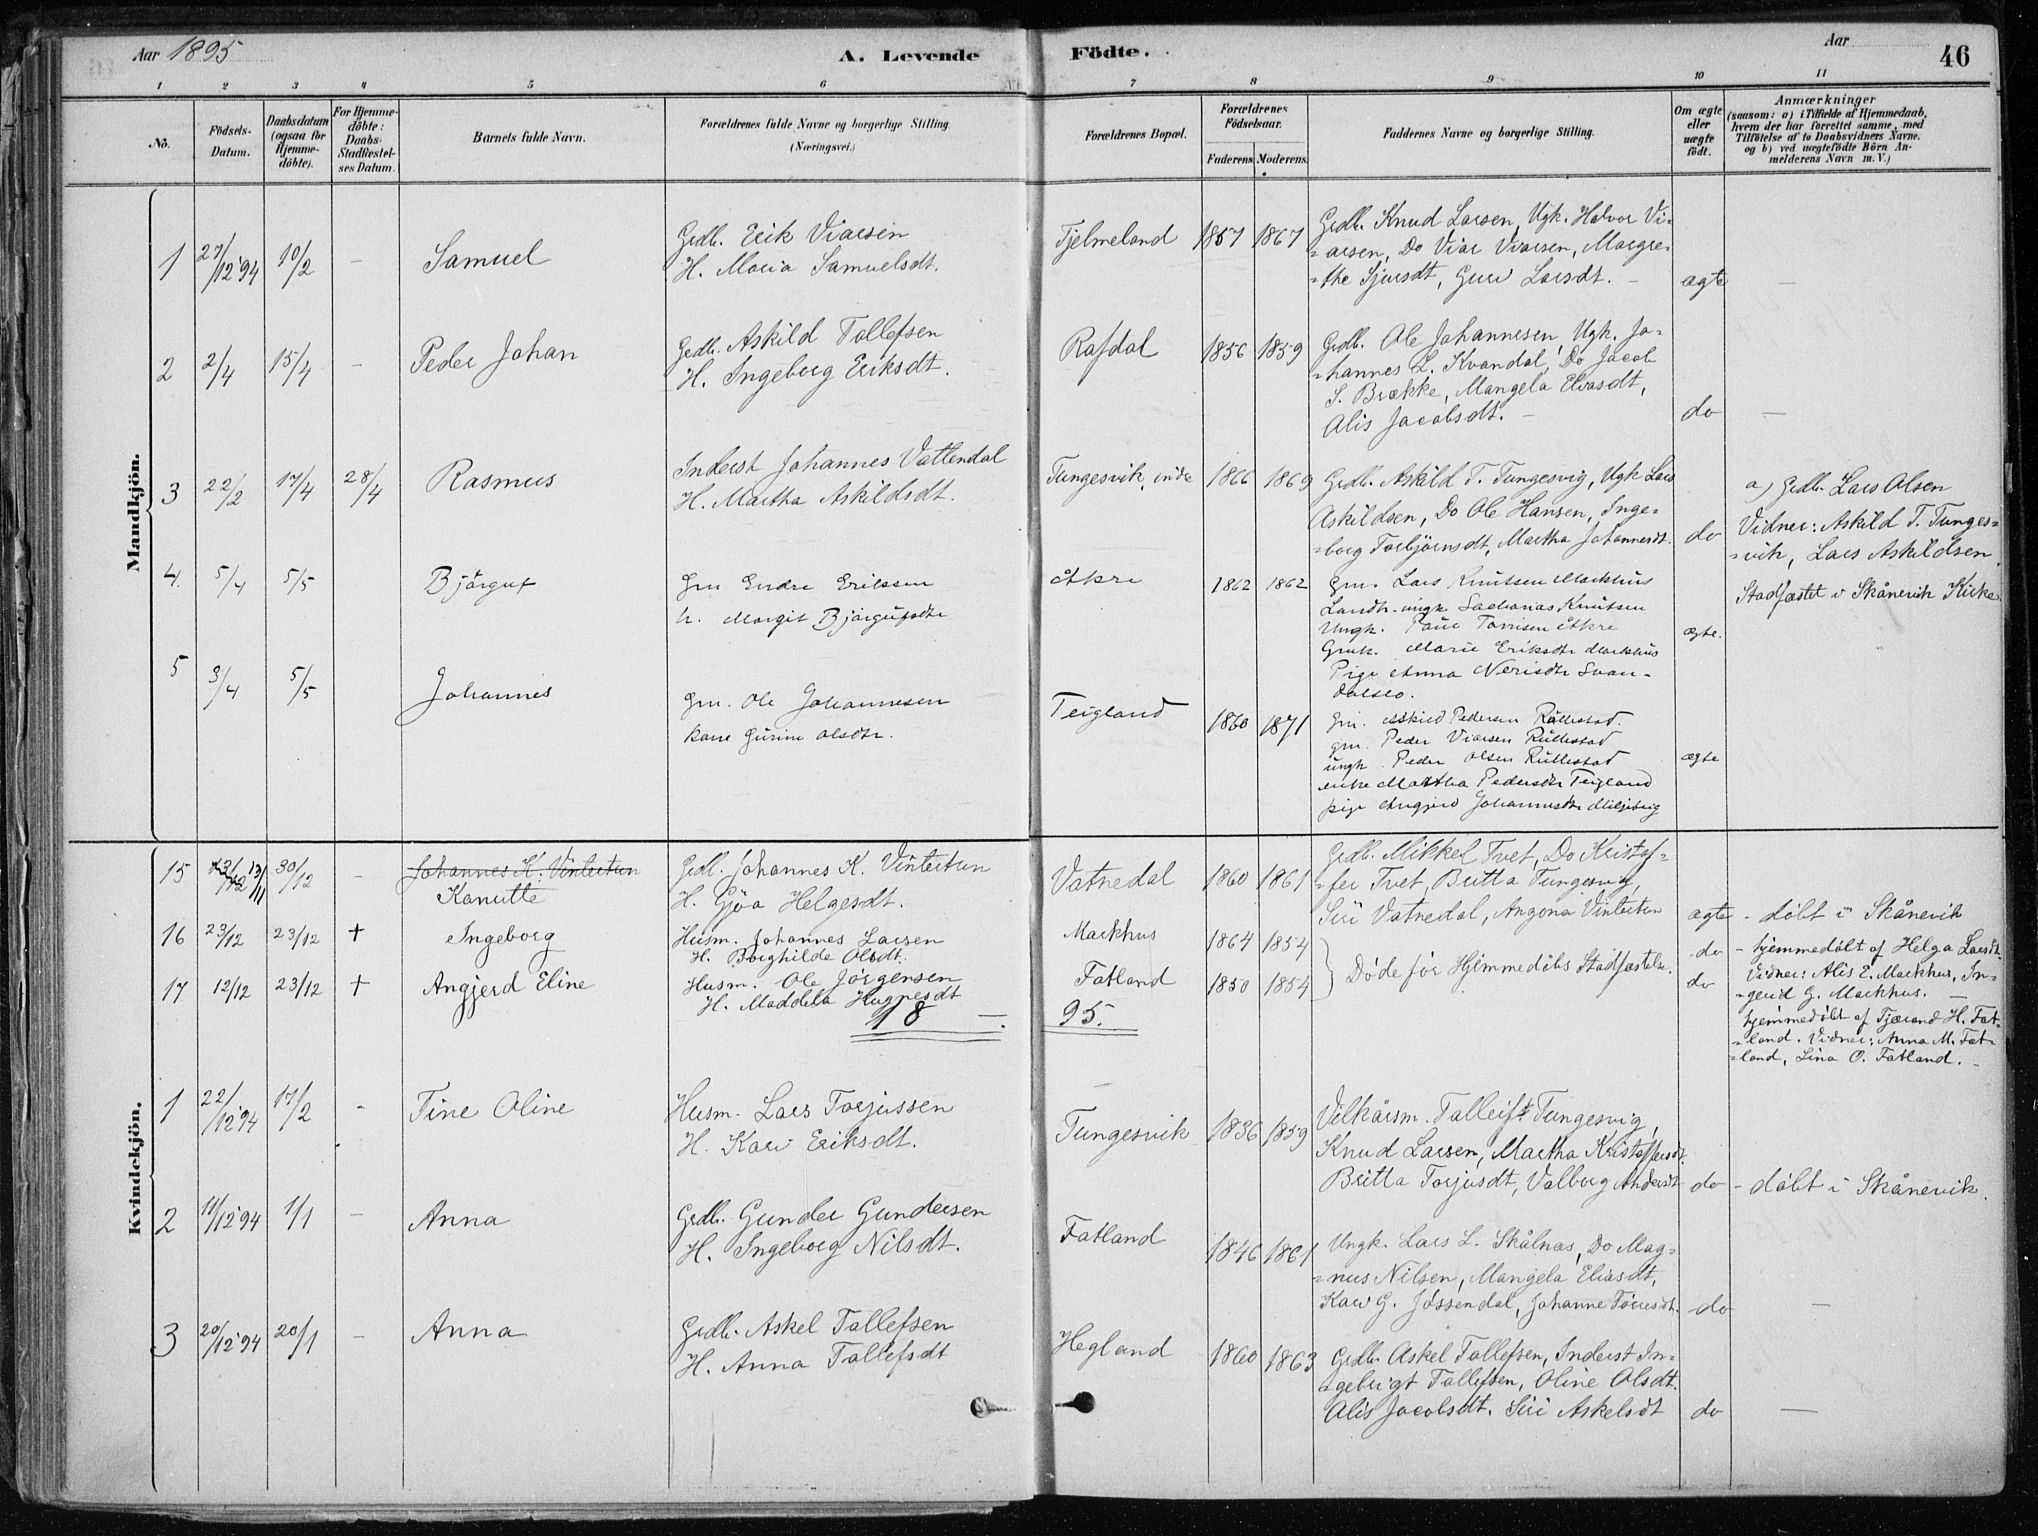 Aar 1895
A. Levende Födte.
Aar
46
1 2 3 4 5 6 7 8 9 10 11
No.
Födsels-Datum.
Daabsdatum (ogsaa for Hjemme-döbte).
For Hjemme-döbte: Daabs-Stadfæstelses Datum.
Barnets fulde Navn.
Forældrenes fulde Navne og borgerlige Stilling. (Næringsvei.)
Forældrenes Bopæl.
Forældrenes Födselsaar.
Faderens. Moderens.
Faddernes Navne og borgerlige Stilling.
Om ægte eller uægte födt.
Anmærkninger
(saasom: a) i Tilfælde af Hjemmedaab,
hvem der har forrettet samme, med
Tilföielse af to Daabsvidners Navne,
og b) ved uægtefödte Börn An-
melderens Navn m. V.)
Mandkjön.
1 27/12 94 10/2 - Samuel
Grdb. Erik Viarsen
H. Maria Samuelsdt.
Tjelmeland 1857 1867
Grdb. Knud Larsen, Ugk. Halvor Vi-
-arsen, Do Viar Viarsen, Margre-
-the Sjursdt, Guri Larsdt. -
ægte -
2 2/4 15/4 - Peder Johan
Grdb. Askild Tallefsen
H. Ingeborg Eriksdt.
Rafdal 1856 1859
Grdb. Ole Johannesen, Ugk. Jo-
-hannes L. Kvandal, Do Jacob
S. Brække, Mangela Elvasdt,
Alis Jacobsdt. -
do -
3 22/2 17/4 28/4 Rasmus
Inderst Johannes Vattendal
H. Martha Askildsdt.
Tungesvik, indre 1866 1869
Grdb. Askild T. Tungesvig, Ugk Lars
Askildsen, Do Ole Hansen, Inge-
-borg Torbjörnsdt, Martha Johannesdt.
do
a) Grdb. Lars Olsen
Vidner: Askild T. Tunges-
-vik, Lars Askildsen
Stadfæstet i Skånevik Kirke
4. 5/4 5/5 Bjørguf
Gm Endre Eriksen
h. Margit Bjørgufsdtr
Åkre 1862 1862
Gm. Lars Knutsen Markhus
Landh. ungk Sacharias Knutsen
Ungk. Paul Tarrisen Åkre
Gmk. Marie Eriksdtr Markhus
Pige Anna Nerisdtr Svan-
dalseo.
ægte.
5 3/4 5/5 Johannes
Gm. Ole Johannesen
kone Gurine Olsdtr.
Teigland 1860 1871
Gm. Askild Pedersen Rullestad.
gm. Peder Viarsen Rullestad
ungk. Peder Olsen Rullestad
enke Martha Pedersdtr Teigland
pige Angjerd Johannesdtr Miljeteig
ægte
Kvindekjön.
15 13/11 30/12 - Johannes K. Vintertun
Kanutte
Grdb. Johannes K. Vintertun
H. Gjøa Helgesdt.
Vatnedal 1860 1861
Grdb. Mikkel Tvet, Do Kristof-
-fer Tvet, Britta Tungesvig,
Siri Vatnedal, Angona Vintertun
ægte - døbt i Skånevik
16 23/12 23/12 + Ingeborg
Husm. Johannes Larsen
H. Borghilde Olsdt.
Markhus 1864 1854
do - hjemmedøbt af Helga Larsdt.
Vidner: Alis E. Markhus, In-
-gerid G. Markhus. -
17 12/12 23/12 + Angjerd Eline
Husm. Ole Jørgensen
H. Maddela Hugnesdt
Fatland 1850 1854
} Døde før Hjemmedåbs Stadfæstelse.
do
hjemmedøbt af Tjærand H. Fat-
-land. Vidner: Anna M. Fat-
-land, Lina O. Fatland. -
18 - 95.
1 22/12 94 17/2 - Tine Oline
Husm. Lars Torjussen
H. Kari Eriksdt.
Tungesvik 1836 1859
Velkårsm. Talleif T Tungesvig,
Knud Larsen, Martha Kristoffersdt.
Britta Torjusdt, Valborg Andersdt
do - døbt i Skånevik.
2 11/12 94 1/1 - Anna
Grdb. Gunder Gundersen
H. Ingeborg Nilsdt.
Fatland 1846 1861
Ungk. Lars L. Skålnæs, Do Mag-
-nus Nilsen, Mangela Eliasdt,
Kari G. Jøssendal, Johanne Torresdt.
do -
3 20/12 94 20/1 - Anna
Grdb. Askel Tallefsen
H. Anna Tallefsdt
Hegland 1860 1863
Grdb. Askel Tallefsen, Inderst In-
-gebrigt Tallefsen, Oline Olsdt.
Alis Jacobsdt. Siri Askelsdt
do -